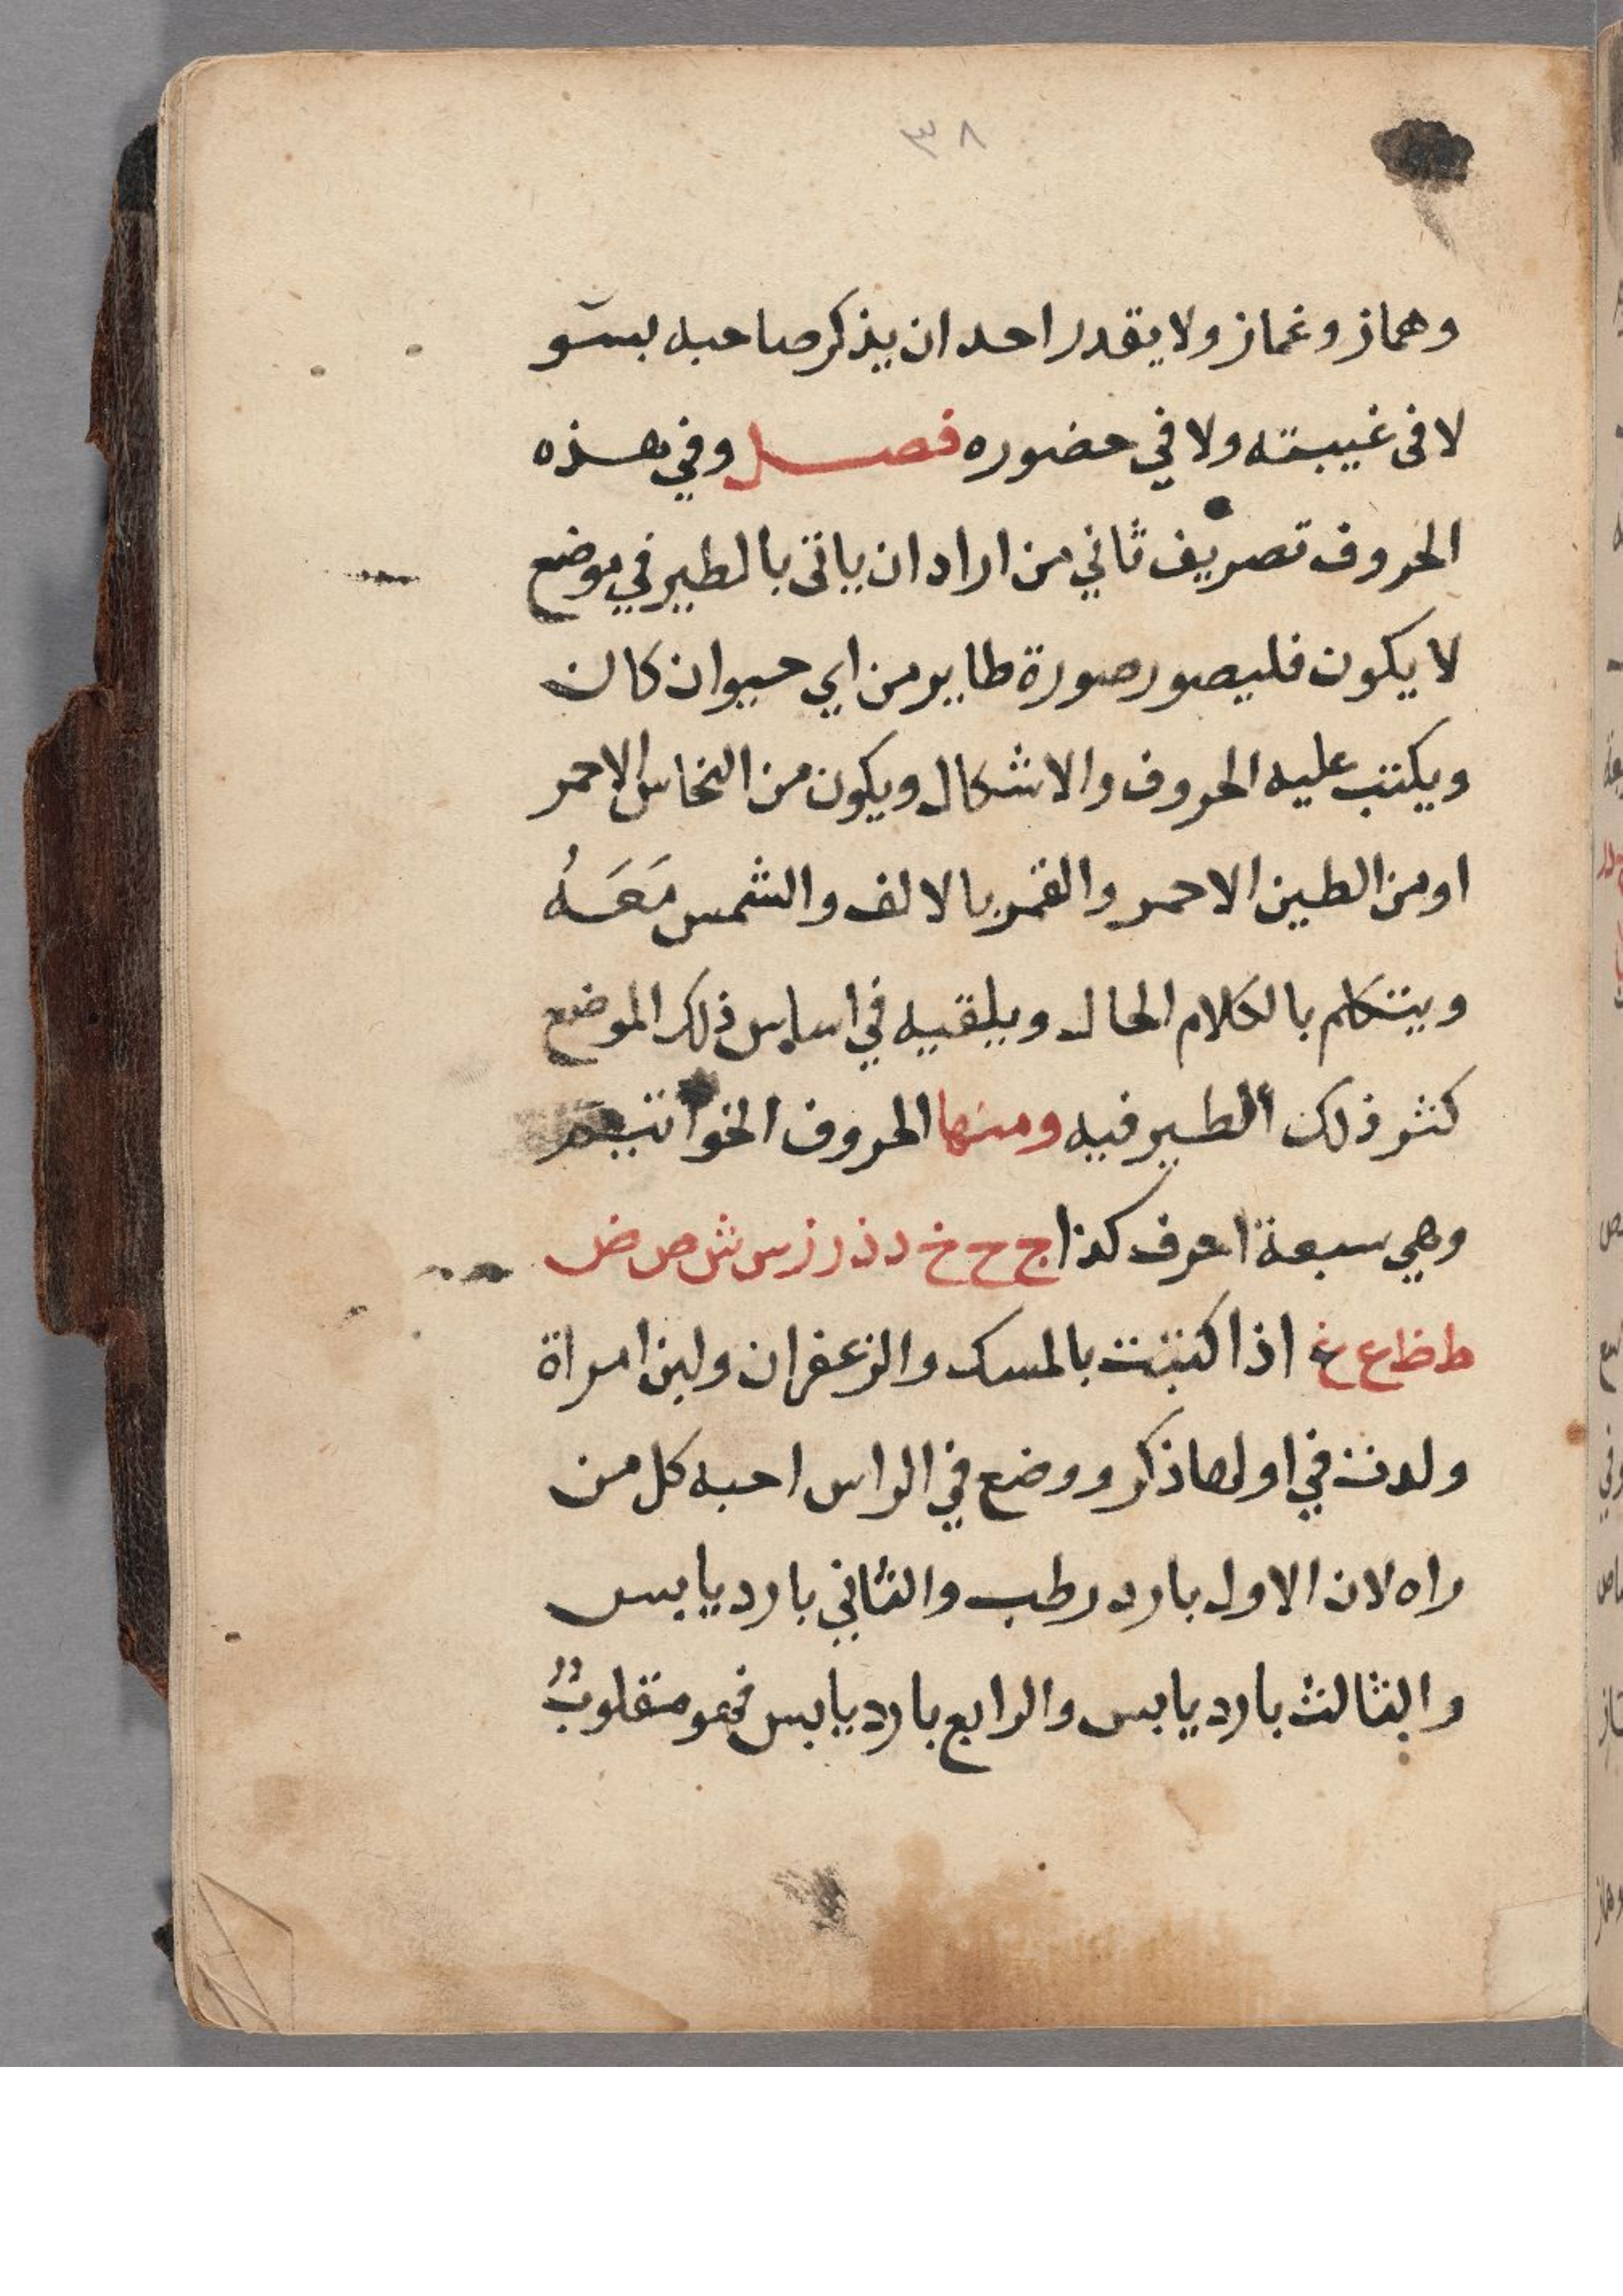 ٣٨
وهماز وغماز ولا يقدر احد ان يذكر صاحبه بسو
لا فى غيبته ولا في حضوره فصل وفي هذه
الحروف تصريف ثاني من اراد ان ياتى بالطير في موضع
لا يكون فليصور صورة طاير من اي حيوان كان
ويكتب عليه الحروف والاشكال ويكون من النحاس الاحمر
او من الطين الاحمر والقمر بالالف والشمس مَعَهُ
ويتكلم بالكلام الحال ويلقيه في اساس ذلك الموضع
كثر ذلك الطير فيه ومنها الحروف الخواتيم
وهي سبعة احرف كذا ج ح خ د ذ ر ز س ش ص ض
ط ظ ع غ اذا كتبت بالمسك والزعفران ولبن امراة
ولدت في اولها ذكر ووضع في الراس احبه كل من
راه لان الاول بارد رطب والثاني بارد يابس
والثالث بارد يابس والرابع بارد يابس فهو مقلوبٌ